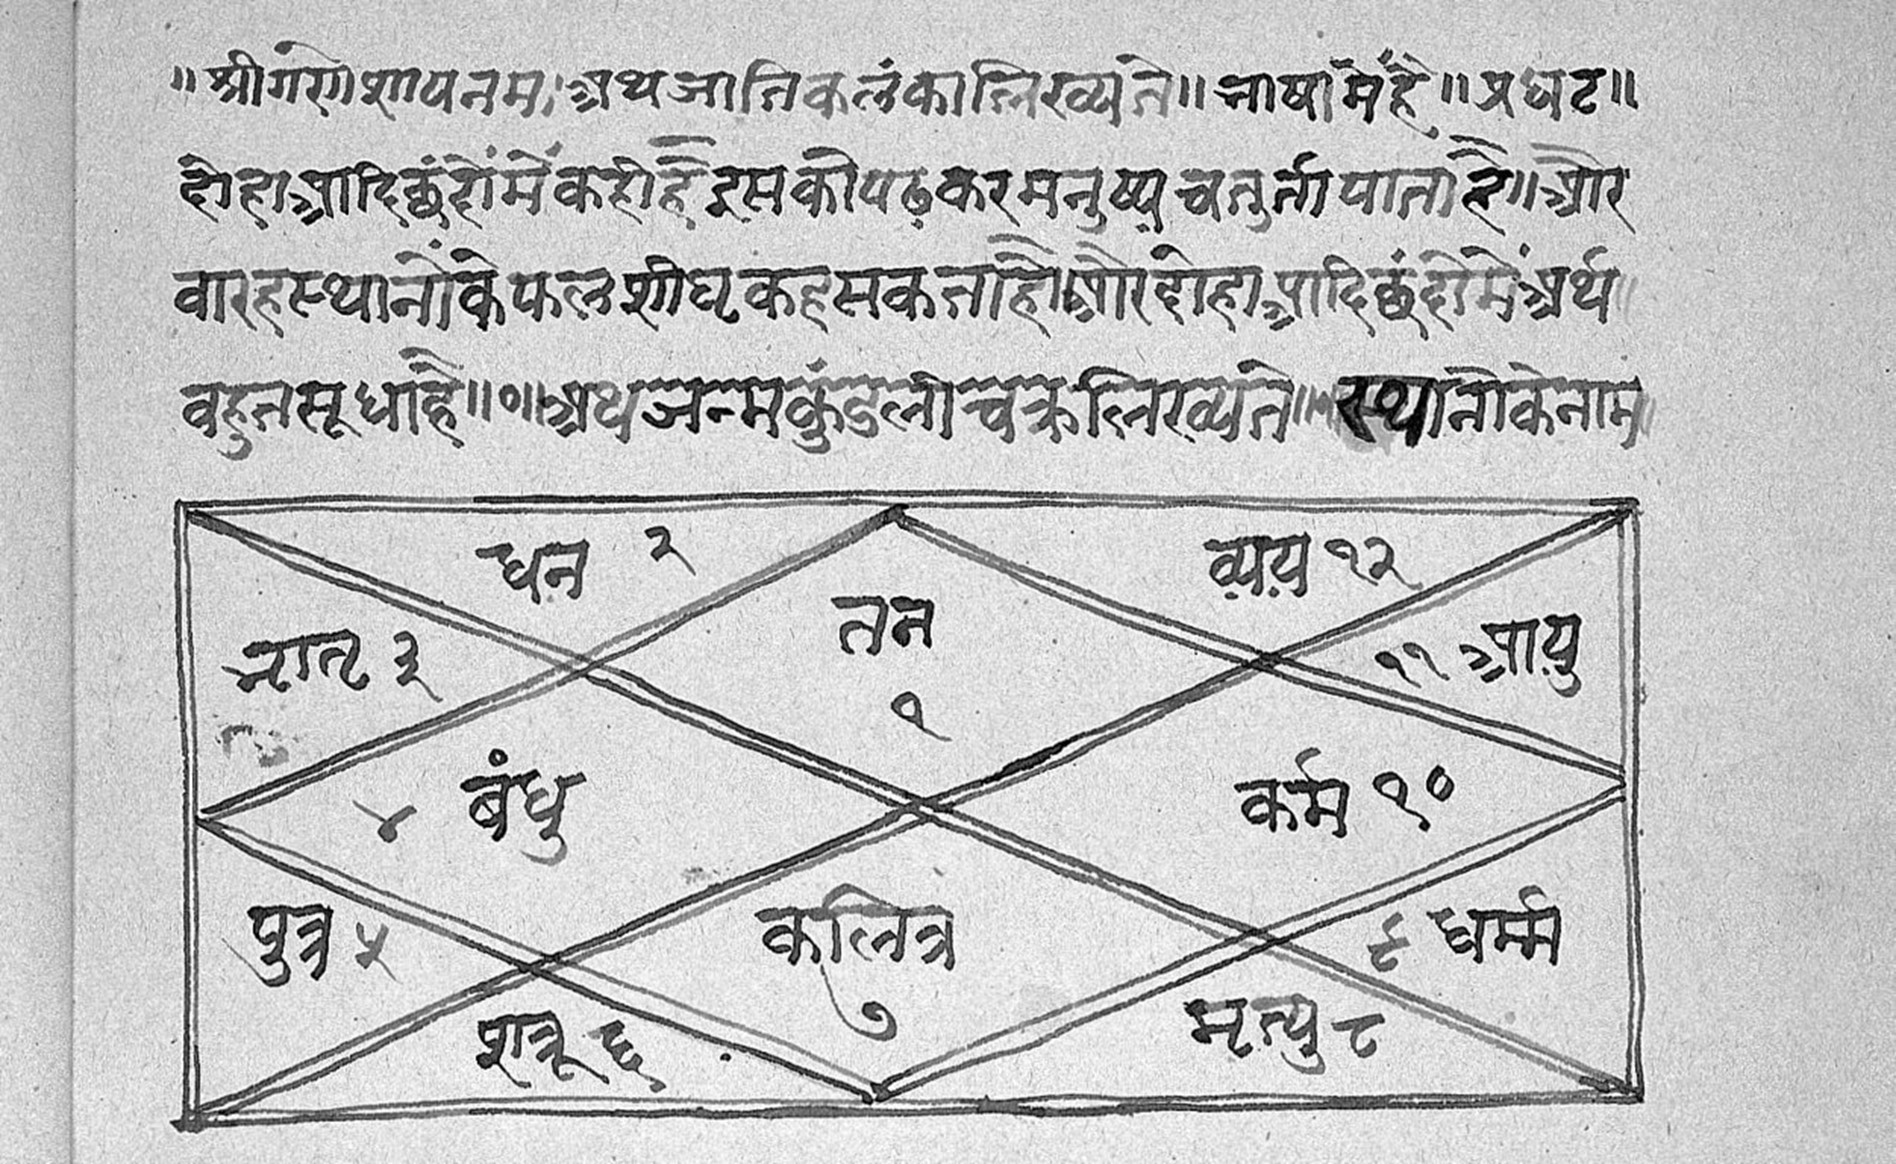 ॥श्रीगणेशायनम।अथजातिकलंकालिख्यते॥भाषामेंहै॥प्रघट॥
दोहाआदिछंदोंमेंकहीहैइसकोपढकरमनुष्यचतुर्तापाताहै॥और
वारहस्थानोंकेफलशीघृकहसकताहै।औरदोहाआदिछंदोंमेंअर्थ
वहुतसूधाहै॥०॥अथजन्मकुंडलीचक्रलिख्यते॥स्थानोकेनाम
धन २
व्यय १२
तन
१
भातृ ३
११ आयु
४ बंधु
कर्म १०
पुत्र ५
कलित्र
७
९ धर्म्म
शत्रू ६
मृत्यु ८